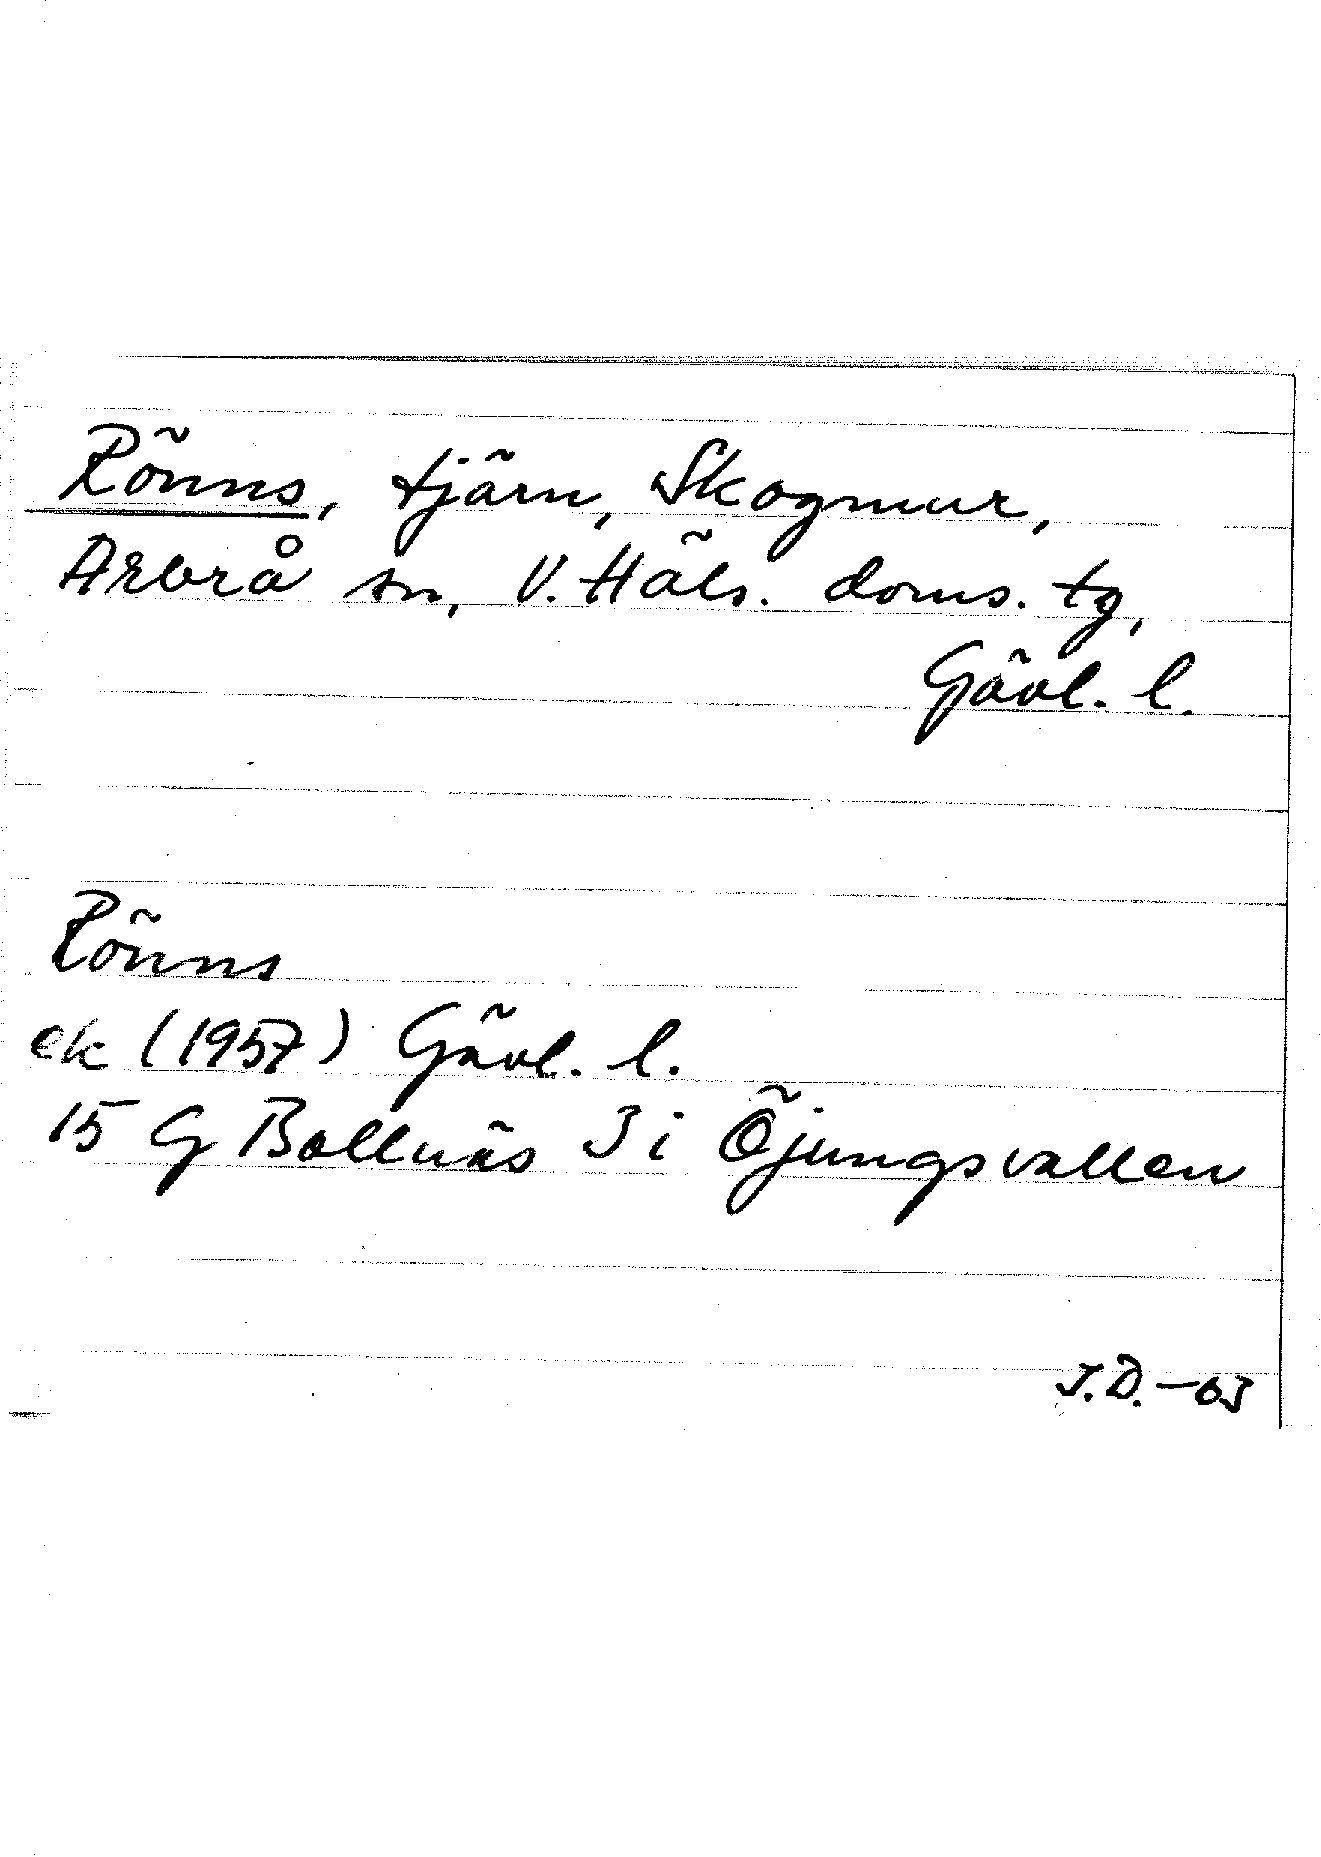 Rönns, tjärn, Skogmur,
Arbrå sn, V. Häls. doms. tg,
Gävl. l.
Rönns
ek (1957) Gävl. l.
15 G Bollnäs 3 i Öjungsvallen
J.D. -63